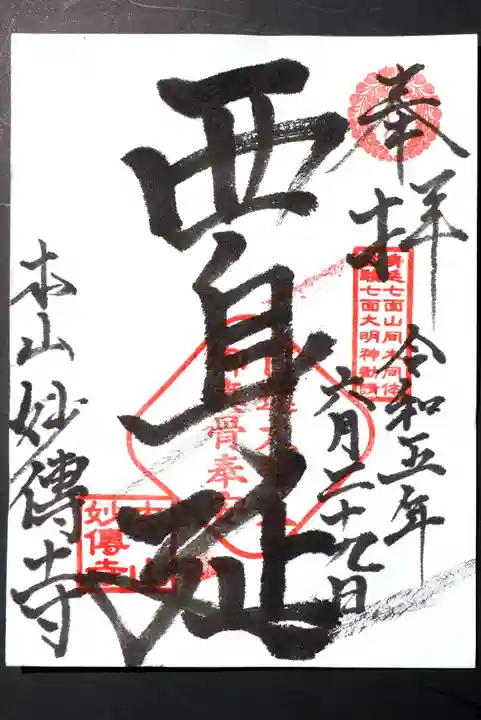 奉拝
令和五年
六月二十九日
身延七面山同木同体
七面大明神勧請
西身延
骨奉
本山妙傳寺
本山
妙傳寺